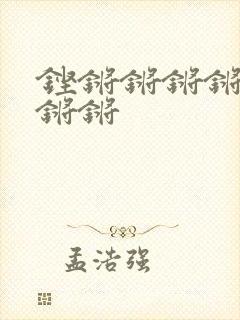 铿锵锵锵锵
锵锵
孟浩强